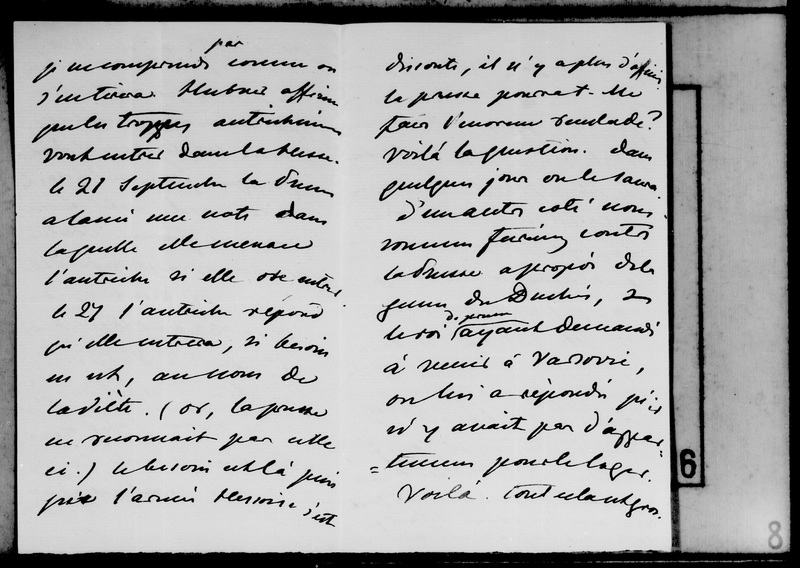 je ne comprends par comme on
s'en tirera. Hubner affirme
que les troppes autrichiennes
vont entrer dans la Hesse.
le 21 Septembre la Prusse
a lancé une note dans
laquelle elle menace
l'autriche si elle ose entrer.
le 27 l'autriche répond
qu'elle entrera, si besoin
en est, au nom de
la diète. (or, la prusse
ne reconnait par celle
ci.) le besoin est là puis
que l'armée Hessoise s'est
dissoute, il n'y a plus d'officiers.
la prusse pourrat-elle
faire l'énorme reculade?
Voilà la question. dans
quelques jours on le saura.
D'un autre coté nous
sommes furieux contre
la Prusse apropos de la
guerre des Duchés, &
le roi de prusse ayant demandé
à venir à Varsovie,
on lui a répondu qu'il
n'y avait par d'appar-
=tement pour le loger.
Voilà. tout cela est gros.
6
8